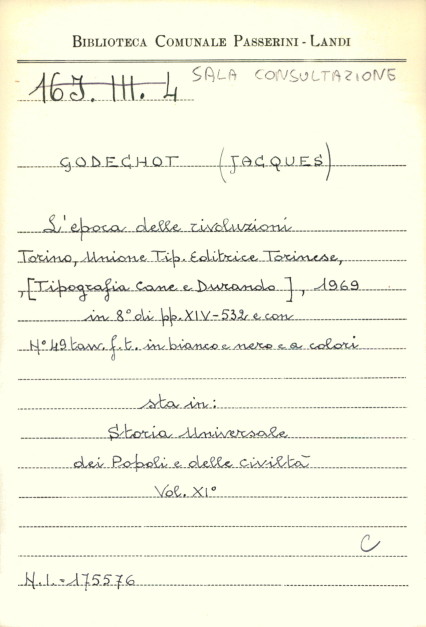 BIBLIOTECA COMUNALE PASSERINI - LANDI
16J. III. 4 SALA CONSULTAZIONE
GODECHOT (JACQUES)
L'epoca delle rivoluzioni
Torino, Unione Tip. Editrice Torinese,
,[Tipografia Cane e Durando], 1969
in 8° di pp. XIV-532 e con
N° 49 tav. f. t. in bianco e nero e a colori
sta in:
Storia Universale
dei Popoli e delle civiltà
Vol. XI°
C
N.I. = 175576